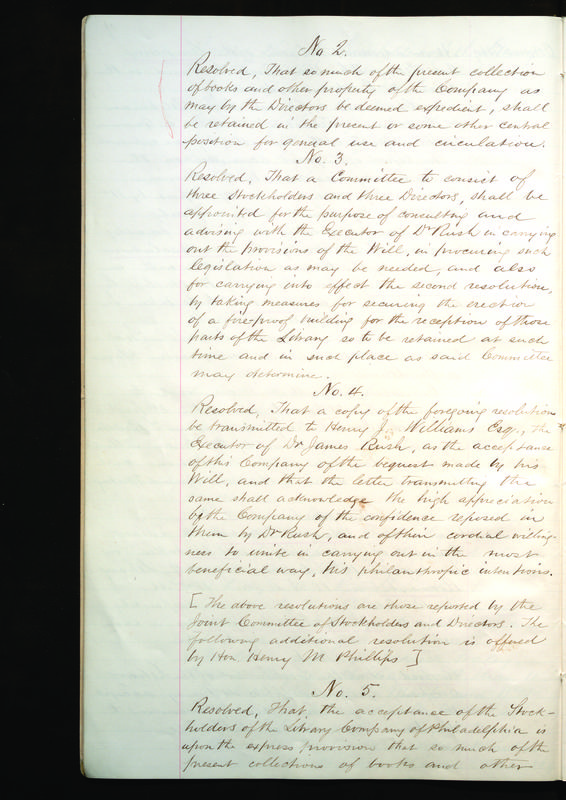 No. 2.
Resolved, That so much of the present collection
of books and other property of the Company as
may by the Directors be deemed expedient, shall
be retained in the present or some other central
position for general use and circulation.
No. 3.
Resolved, That a Committee to consist of
three Stockholders and three Directors, shall be
appointed for the purpose of consulting and
advising with the Executor of Dr Rush in carrying
out the provisions of the Will, in procuring such
legislation as may be needed, and also
for carrying into effect the second resolution,
by taking measures for securing the erection
of a fire-proof building for the reception of those
parts of the Library so to be retained at such
time and in such place as said Committee
may determine.
No. 4.
Resolved, That a copy of the foregoing resolution
be transmitted to Henry J. Williams Esq., the
Executor of Dr James Rush, as the acceptance
of this Company of the bequest made by his
Will, and that the letter transmitting the
same shall acknowledge the high appreciation
by the Company of the confidence reposed in
them by Dr Rush, and of their cordial willing-
ness to unite in carrying out in the most
beneficial way, his philanthropic intentions.
[The above resolutions are those reported by the
Joint Committee of Stockholders and Directors. The
following additional resolution is offered
by Hon. Henry M Phillips]
No. 5.
Resolved, That, the acceptance of the Stock-
holders of the Library Company of Philadelphia is
upon the express provision that so much of the
present collections of books and other